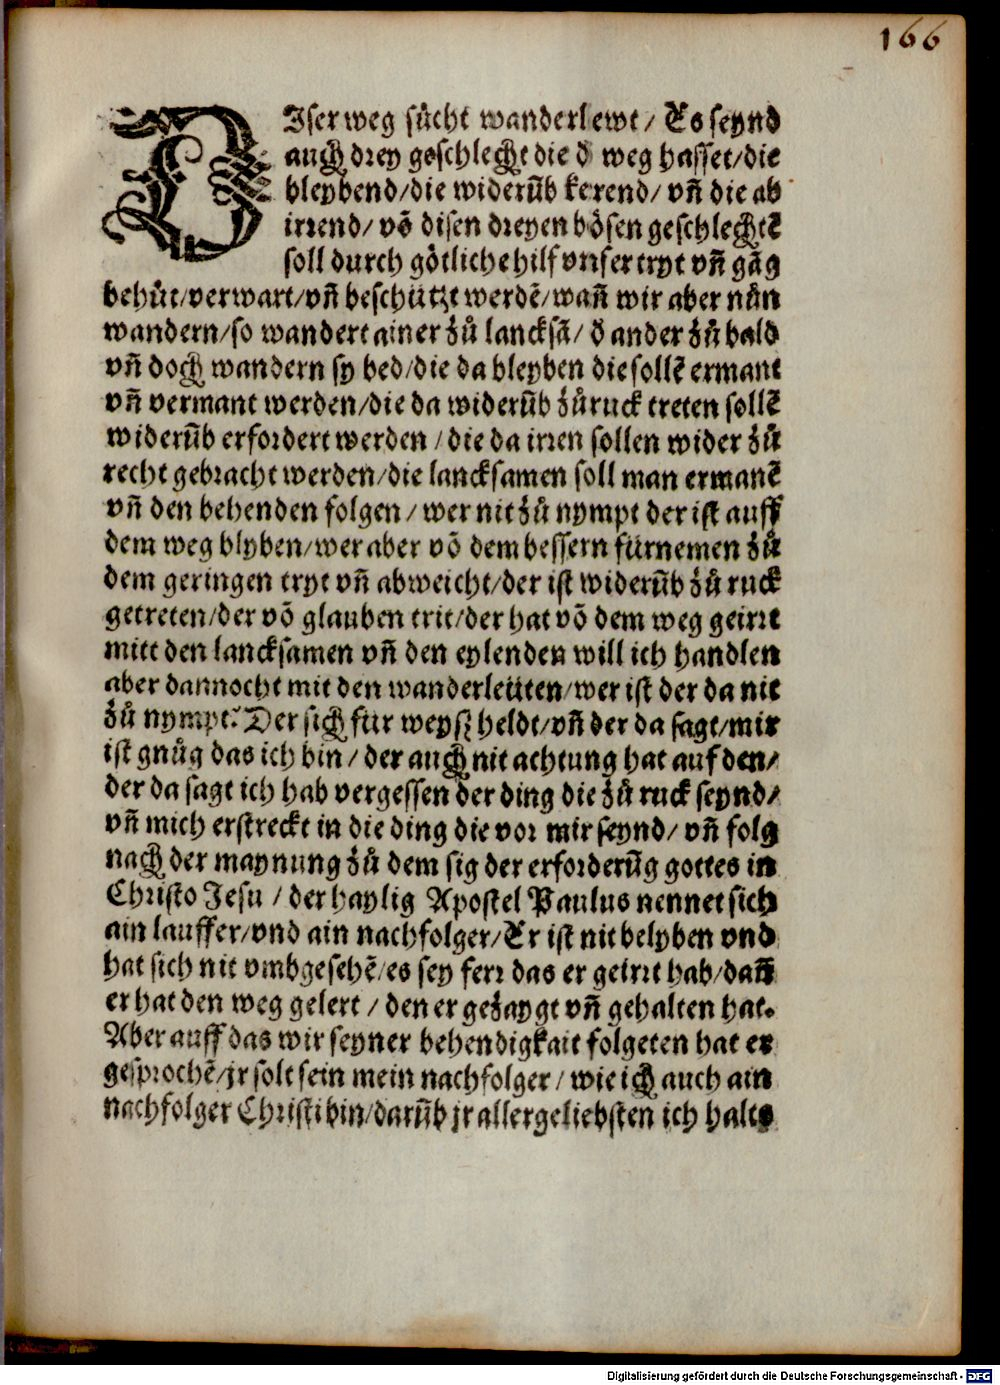 166
DIser weg sücht wanderlewt / Es seynd
auch drey geschlecht die d̄ weg hasset/die
bleybend/die widerūb kerend/ vn̄ die ab
irrend/ vō disen dreyen bösen geschlechtē
soll durch götliche hilf vnser tryt vn̄ gāg
behüt/verwart/vn̄ beschützt werdē/wan̄ wir aber nůn
wandern/so wandert ainer zů lancksā/ d̄ ander zů bald
vn̄ doch wandern sy bed/die da bleyben die sollē ermant
vn̄ vermant werden/die da widerūb zůruck treten sollē
widerūb erfordert werden / die da irren sollen wider zů
recht gebracht werden/die lancksamen soll man ermanē
vn̄ den behenden folgen / wer nit zů nympt der ist auff
dem weg blyben/wer aber vō dem bessern fürnemen zů
dem geringen tryt vn̄ abweicht/der ist widerūb zů ruck
getreten/der vō glauben trit/der hat vō dem weg geirrt
mitt den lancksamen vn̄ den eylenden will ich handlen
aber dannocht mit den wanderleüten/wer ist der da nit
zů nympt? Der sich für weysz heldt/vn̄ der da sagt/mir
ist gnůg das ich bin / der auch nit achtung hat auf den/
der da sagt ich hab vergessen der ding die zů ruck seynd/
vn̄ mich erstreckt in die ding die vor mir seynd/ vn̄ folg
nach der maynung zů dem sig der erforderūg gottes in
Christo Jesu / der haylig Apostel Paulus nennet sich
ain lauffer/vnd ain nachfolger/Er ist nit belyben vnd
hat sich nit vmbgesehē/es sey ferr das er geirrt hab/dan̄
er hat den weg gelert / den er gezaygt vn̄ gehalten hat.
Aber auff das wir seyner behendigkait folgeten hat er
gesprochē/jr solt sein mein nachfolger / wie ich auch ain
nachfolger Christi bin/darūb jr allergeliebsten ich halts
Digitalisierung gefördert durch die Deutsche Forschungsgemeinschaft - DFG